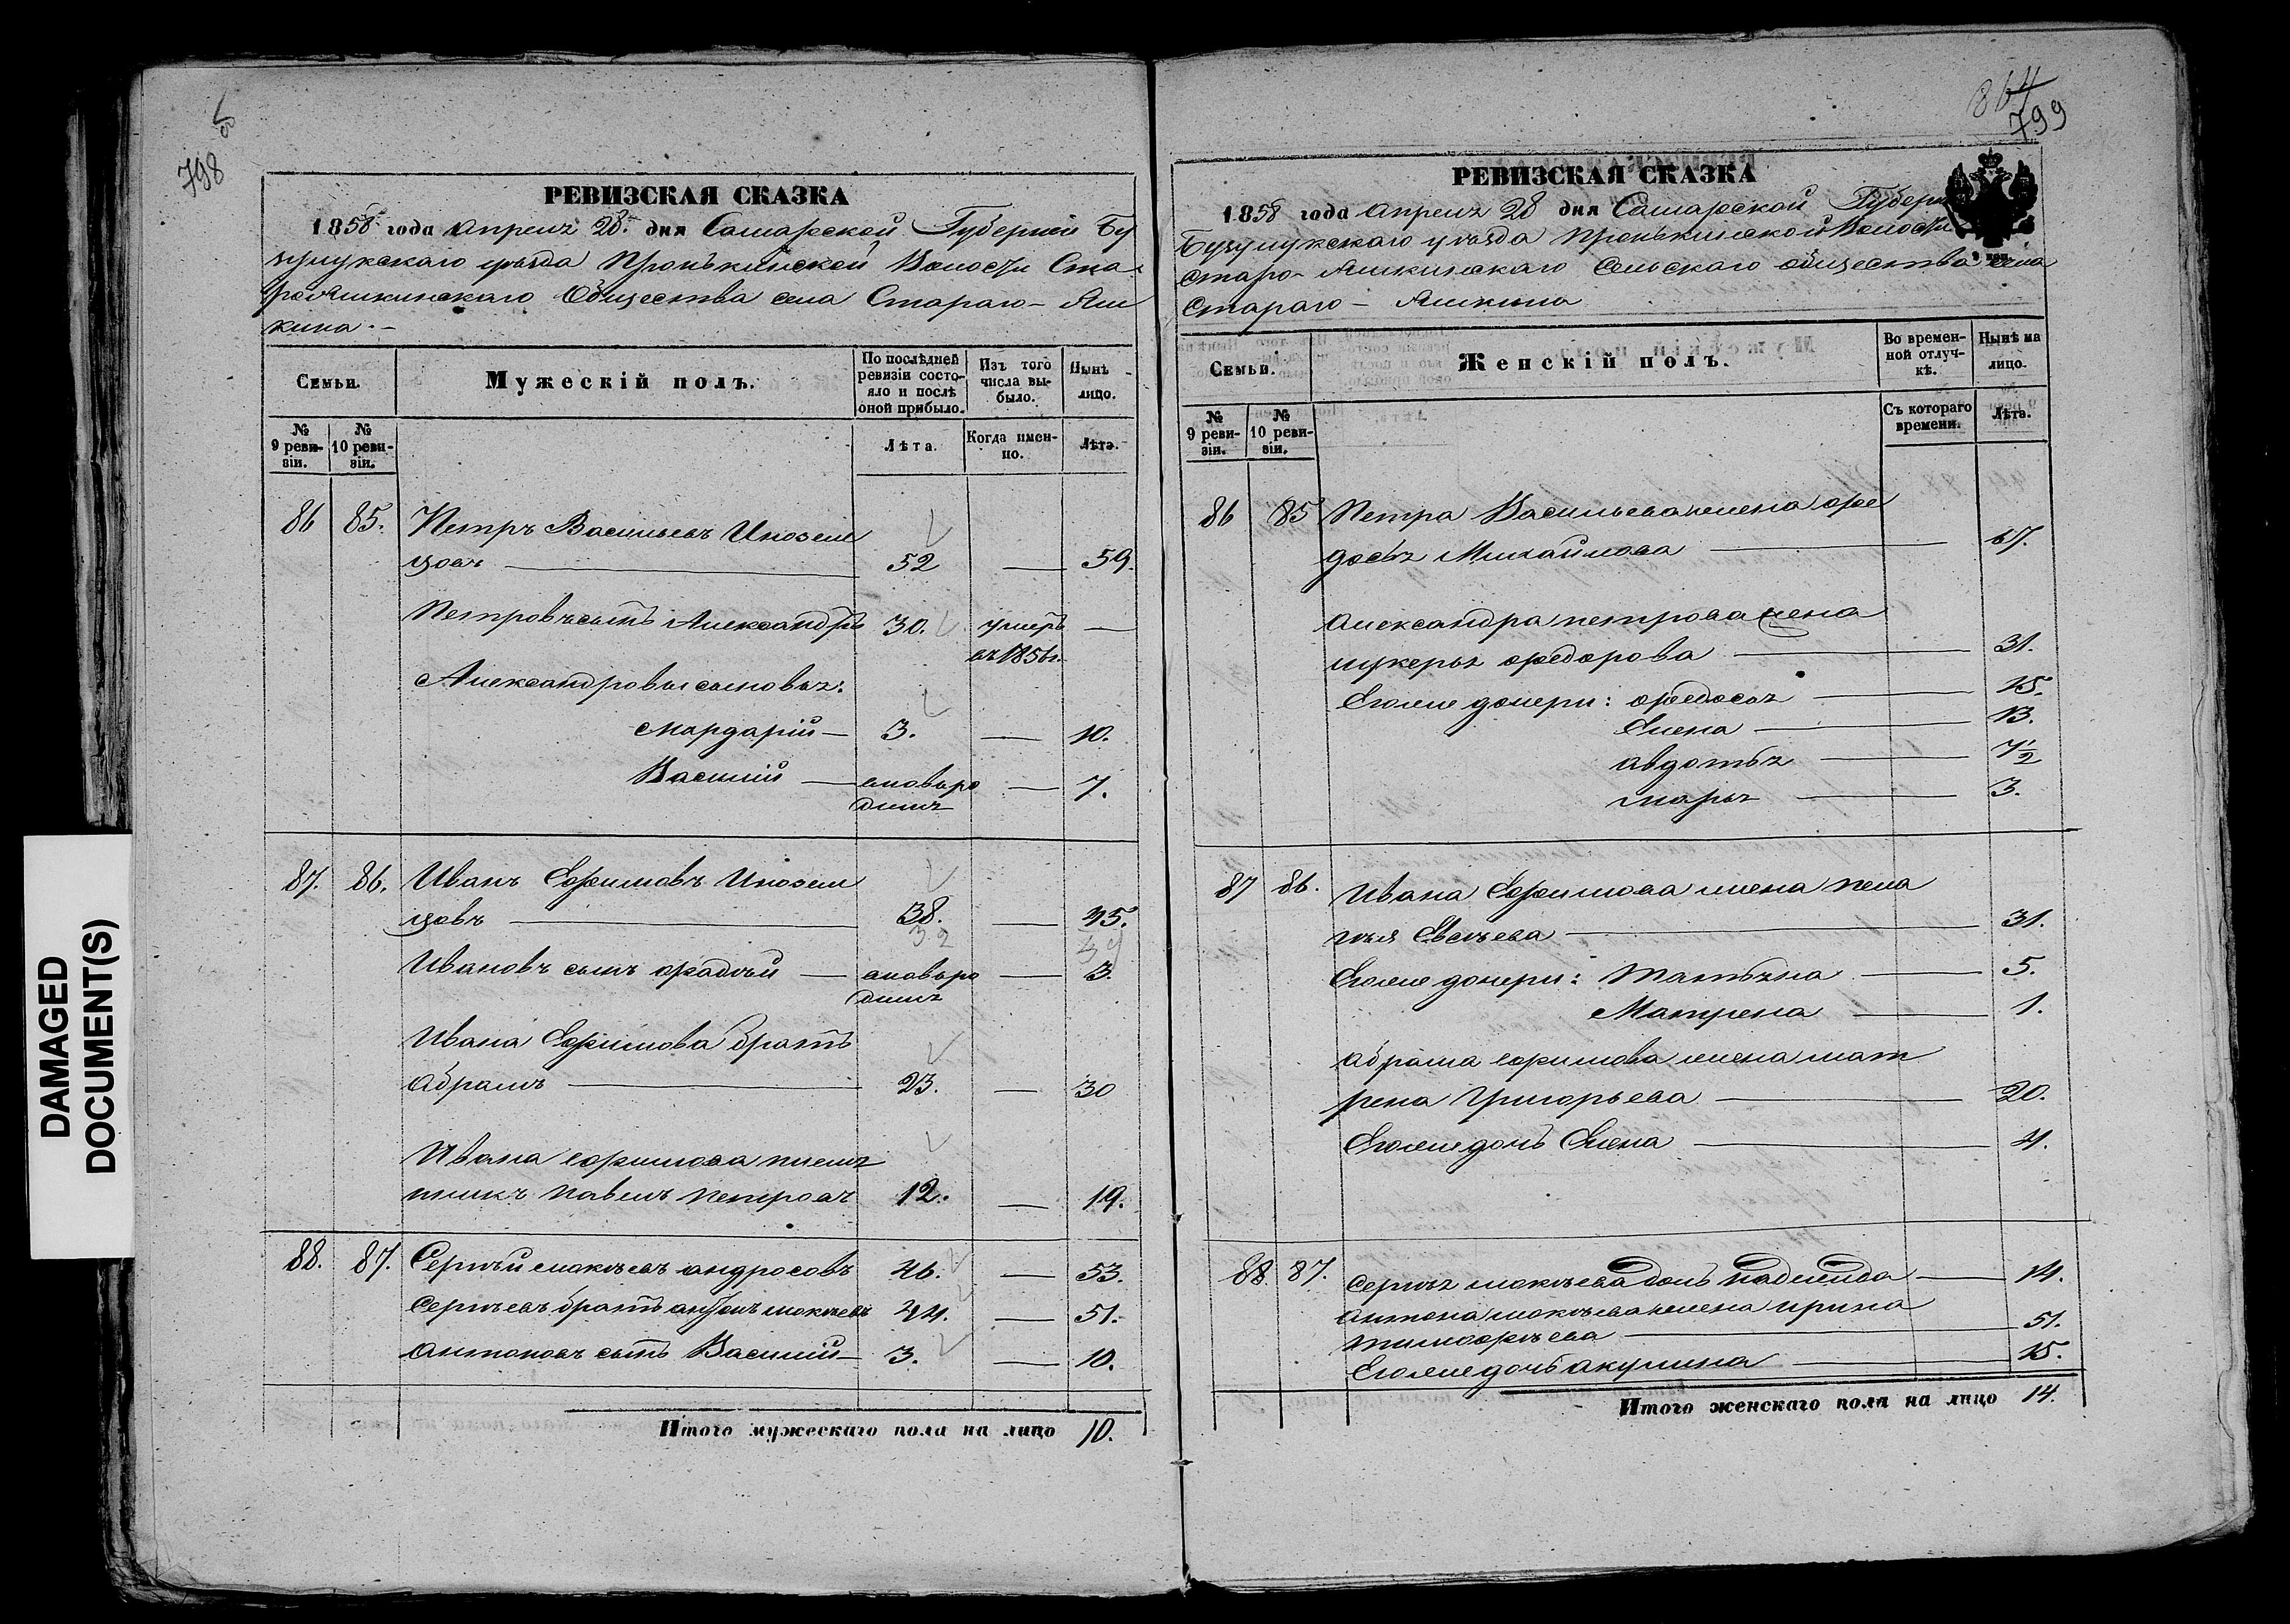 798
РЕВИЗСКАЯ СКАЗКА
1858 года Апреля 28 дня Самарской Губерніи Бу
зулукскаго уѣзда Пронькинской Волости Ста-
роЯшкинскаго Общества села Стараго- Яш
кина.-
Семьи.
Мужескій полъ.
По послѣдней ревизіи состо-
яло и послѣ оной прибыло.
Изъ того числа вы-
было.
Нынѣ лицо.
№ 9 реви-
зіи.
№ 10 реви-
зіи.
Лѣта.
Когда имен-
но.
Лѣта.
86 85. Петръ Васильевъ Инозем
цовъ 52 — 59.
Петровъ сынъ Александръ 30. умеръ —
въ 1856г.
Александровы сыновья:
Мардарій — 3. — 10.
Василій — вновь ро — 7.
дился
87. 86. Иванъ Ефимовъ Инозем
цовъ 38. — 45.
32
Ивановъ сынъ Фадѣй — вновь ро — 3.
дился
Ивана Ефимова братъ
Абрамъ 23. — 30
Ивана Ефимова племя
нникъ Павелъ Петровъ 12. — 19.
88. 87. Сергѣй Мокѣевъ Андросовъ 46. — 53.
Сергѣевъ братъ Антонъ Мокѣевъ 44. — 51.
Антоновъ сынъ Василій — 3. — 10.
Итого мужескаго пола на лицо 10.
864
799
РЕВИЗСКАЯ СКАЗКА
1858 года Апреля 28 дня Самарской Губерн
Бузулукскаго уѣзда Пронькинской Волости
Старо- Яшкинскаго Сельскаго общества села
Стараго - Яшкина
Семьи.
Женскій полъ.
Во времен-
ной отлуч-
кѣ.
Нынѣ на лицо.
№ 9 реви-
зіи.
№ 10 реви-
зіи.
Съ котораго времени.
Лѣта.
86 85 Петра Васильева жена Фе
досья Михайлова — 67.
Александра Петрова жена
Лукерья Федорова — 31.
Егоже дочери: Федосья — 15.
Елена — 13.
Авдотья — 7 1/2
Марья — 3.
87 86. Ивана Ефимова жена Пела
гѣя Евсѣева — 31.
Егоже дочери: Татьяна — 5.
Матрена — 1.
Абрама Ефимова жена Мат
рена Григорьева — 20.
Егоже дочь Елена — 4.
88. 87. Сергѣя Мокѣева дочь — 14.
Антона Мокѣева жена Ирина
Тимофѣева — 51.
Егоже дочь Акулина — 15.
Итого женскаго пола на лицо 14.
DAMAGED
DOCUMENT(S)